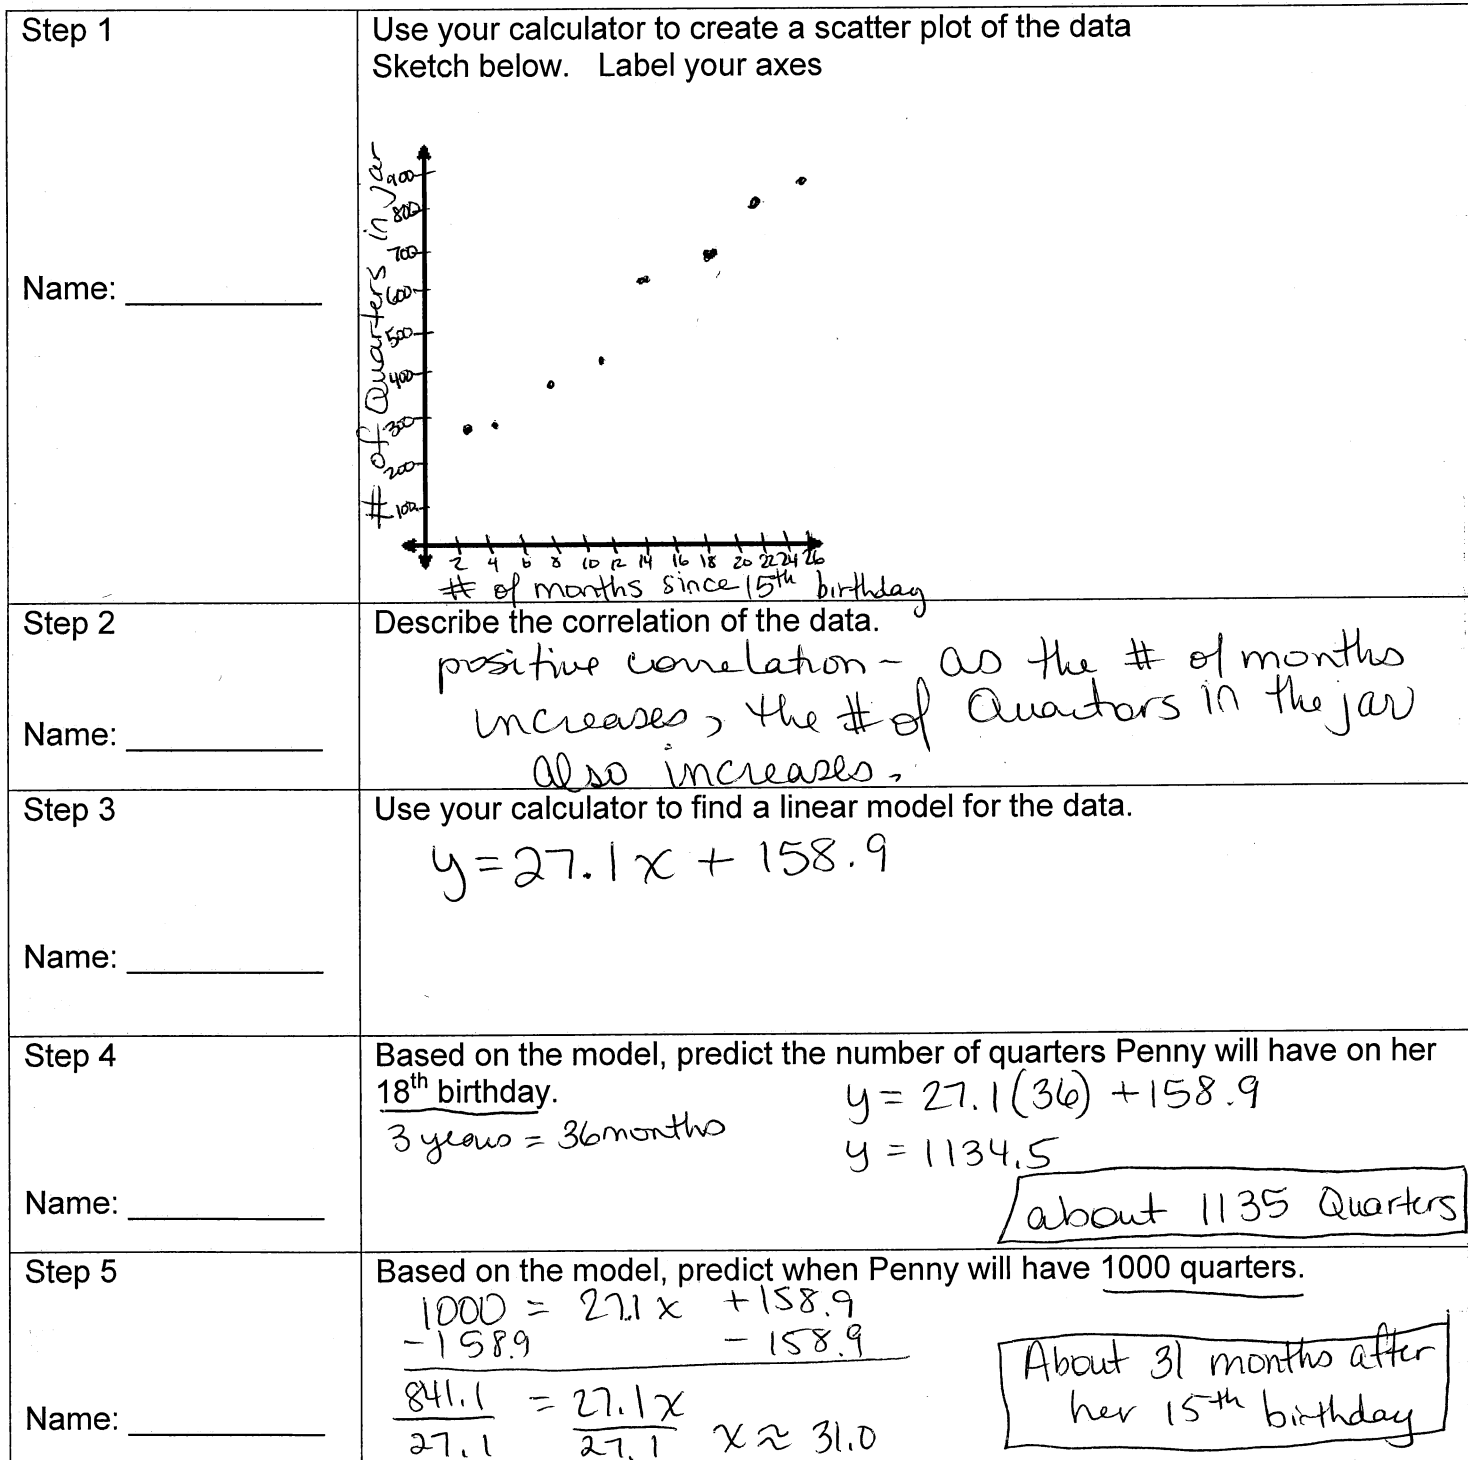 Step 1
Use your calculator to create a scatter plot of the data
Sketch below. Label your axes
Name:
# of Quarters in jar
900
800
700
600
500
400
300
200
100
2 4 6 8 10 12 14 16 18 20 22 24 26
# of months since 15th birthday
Step 2
Describe the correlation of the data.
positive correlation - as the # of months
increases, the # of Quarters in the jar
also increases.
Name:
Step 3
Use your calculator to find a linear model for the data.
y = 27.1x + 158.9
Name:
Step 4
Based on the model, predict the number of quarters Penny will have on her
18th birthday.
3 years = 36 months
y = 27.1(36) + 158.9
y = 1134.5
about 1135 Quarters
Name:
Step 5
Based on the model, predict when Penny will have 1000 quarters.
1000 = 27.1x + 158.9
-158.9 - 158.9
841.1 = 27.1x
27.1 27.1 x ≈ 31.0
About 31 months after
her 15th birthday
Name: